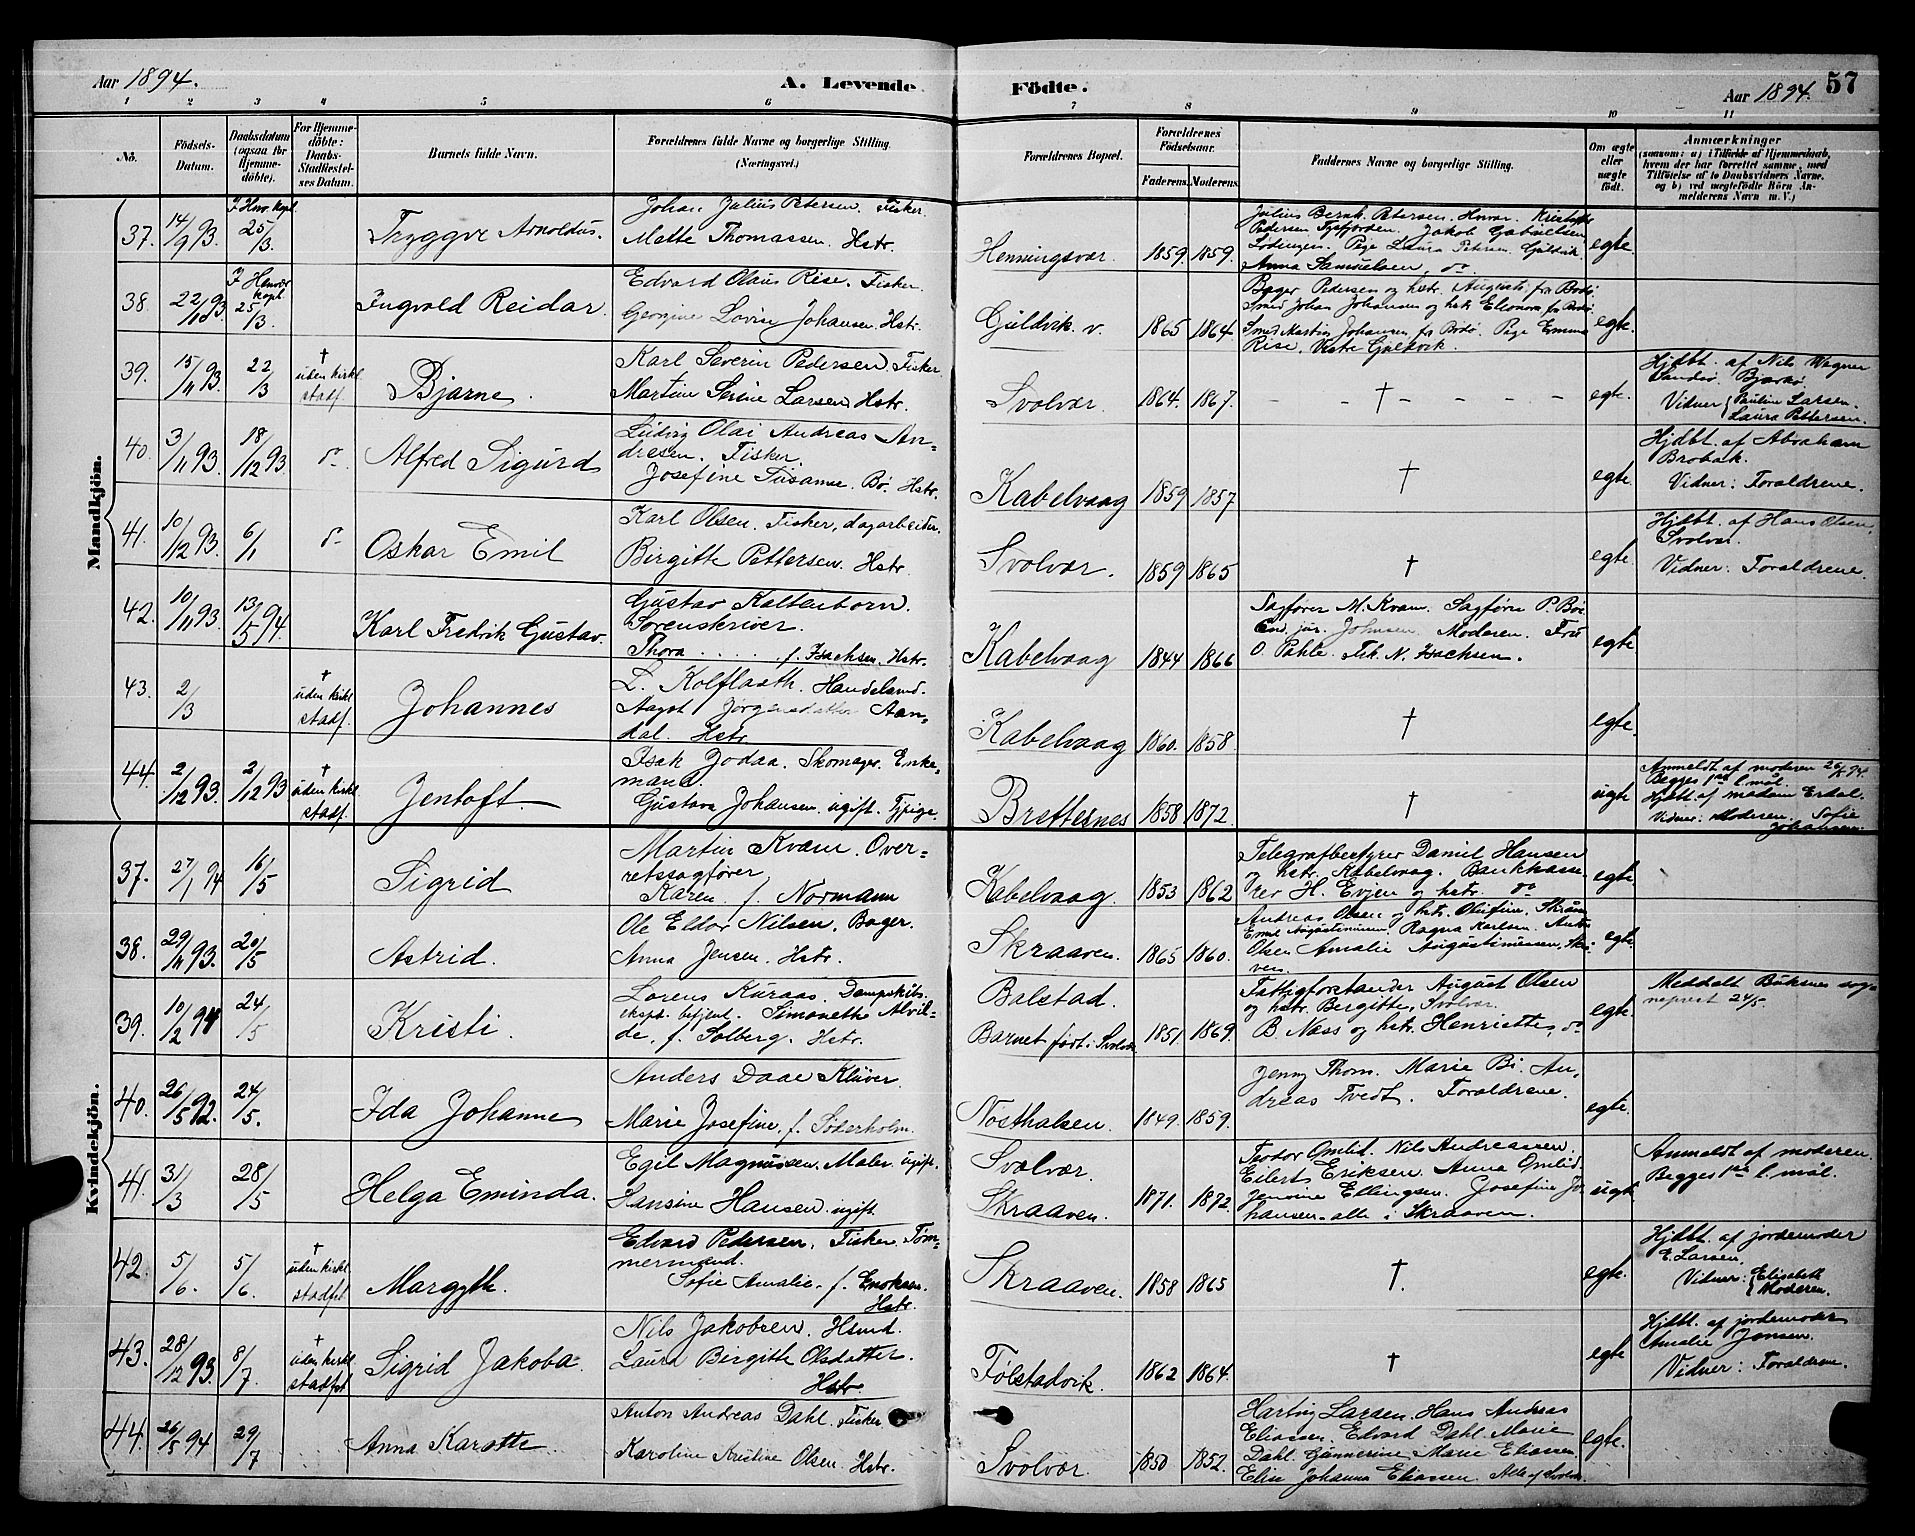 Aar 1894.
A. Levende Födte.
Aar 1894. 57
1 2 3 4 5 6 7 8 9 10 11
No.
Födsels-Datum.
Daabsdatum (ogsaa for Hjemme-döbte).
For Hjemme-döbte: Daabs-Stadfæstel-ses Datum.
Barnets fulde Navn.
Forældrenes fulde Navne og borgerlige Stilling. (Næringsvei.)
Forældrenes Bopæl.
Forældrenes Födselsaar.
Faderens. Moderens.
Faddernes Navne og borgerlige Stilling.
Om ægte eller uægte født.
Anmærkninger
(saasom: a) i Tilfælde af Hjemmedaab, hvem der har forrettet samme, med Tilföielse af to Daabsvidners Navne, og b) ved uægtefödte Börn An-melderens Navn m. V.)
Mandkjön.
37. 14/9 93. 25/3. Tryggve Arnoldus.
Johan Julius Petersen. Fisker.
Mette Thomassen. Hstr.
Henningsvær. 1859. 1859.
Julius Bernh. Petersen. Hvær.
Pedersen Jakob
Pige Laura Petersen
Anna Samuelsen, do
egte.
38. 22/10 93. 25/3. Ingvald Reidar.
Edvard Olaus Rise. Fisker.
Georgine Lovise Johansen. Hstr.
Gjuldvik v. 1865 1864.
Bager Pedersen og hstr. Augusta fra Bodø.
Smed Johan Johansen og hstr. Elonora fr Bodø
Smed Martin Johansen fr Bodø. Pige Emma
Rise.
egte.
39. 15/11 93. 22/3 † uden kirkl. stadf. Bjarne.
Karl Severin Pedersen. Fisker.
Martine Serine Larsen Hstr.
Svolvær. 1864. 1867. †
egte.
Hjdbt. af Nils Wagner
Sandsø. Bjarkø.
Vidner { Pauline Larsen.
Laura Pettersen.
40. 3/11 93. 18/12 93. do. Alfred Sigurd
Ludvig Olai Andreas An-
dresen. Fisker.
Josefine Susanne. Bø. Hstr.
Kabelvaag 1859 1857. †
egte.
Hjdbt. af Abraham
Brobak.
Vidner: Forældrene.
41. 10/12 93. 6/1 do. Oskar Emil
Karl Olsen. Fisker, dagarbeider.
Birgitte Pettersen. Hstr.
Svolvær. 1859 1865 †
egte.
Hjdbt. af Hans Olsen,
Svolvær.
Vidner: Forældrene.
42. 10/11 93. 13/5 94. Karl Fredrik Gustav.
Gustav Kaltenborn.
Sorenskriver.
Thora . . . . f. Isachsen. Hstr.
Kabelvaag 1844 1866
Sagfører M. Kvam. Sagfører P. Bø.
Cand. jur. Johnsen. Moderen. Fru
O. Pahle. Frk. N. Isachsen.
egte
43. 2/3 † uden kirkl. stadf. Johannes
L. Kolflaath. Handelsmd.
Aagot Jørgensdatter Aan-
dal. Hstr.
Kabelvaag 1860. 1858. †
egte.
44. 2/12 93. 2/12 93 † uden kirkl. stadf. Jentoft.
Isak Jodaa. Skomager. Enke-
mand.
Gustava Johansen. ugift. Tjpige.
Brettesnes 1858 1872. †
uegte
Anmeldt af moderen 26/5 94.
Begges 1ste l. mål.
Hjdbt. af madam Erdal.
Vidner: Moderen. Sofie
Johansen.
Kvindekjön.
37. 27/1 94 16/5 Sigrid
Martin Kvam. Over-
retssagfører
Karen f. Normann
Kabelvaag. 1853 1862
Telegrafbestyrer Daniel Hansen
og hstr. Kabelvaag. Bankkasse-
rer H. Evjen og hstr. do
egte.
38. 29/11 93. 20/5 Astrid.
Ole Eldor Nilsen. Bager.
Anna Jensen. Hstr.
Skraaven. 1865 1860.
Andreas Olsen og hstr. Olufine. Skrå
Emil Augustinussen. Ragna Karlsen.
Olsen Amalie Augustinussen,
ven.
egte
39. 10/2 94 24/5 Kristi
Lorens Kuraas. Dampskibs-
eksp. betjent. Simonette Alvil-
de, f. Solberg. Hstr.
Balstad.
Barnet født i Svolvær 1851 1869.
Fattigforstander August Olsen
og hstr. Bergitte, Svolvær.
B. Næss og hstr. Henriette, do
egte.
Meddelt Buksnes sog-
neprest 24/5
40. 26/5 92. 24/5. Ida Johanne
Anders Daae Klüver.
Marie Josefine, f. Söderholm.
Nösthalsen. 1849. 1859.
Jenny Thom. Marie Bø. An-
dreas Tvedt. Forældrene.
egte.
41. 31/3 28/5 Helga Eminda.
Egil Magnussen. Maler. ugift.
Hansine Hansen. ugift.
Svolvær.
Skraaven. 1871. 1872.
Teodor Omlid. Nils Andreassen.
Eilert Eriksen. Anna Omlid.
Jensine Ellingsen. Josefine Jo-
hansen. alle i Skraaven.
uegte
Anmeldt af moderen.
Begges 1ste l. mål.
42. 5/6. 5/6. † uden kirkl. stadfst. Margyth.
Edvard Pedersen. Fisker. Töm-
mermand.
Sofie Amalie. f. Enoksen.
Hstr.
Skraaven. 1858 1865 †.
egte.
Hjdbt. af jordemoder
E. Larsen.
Vidner: { Elisabeth
Moderen.
43. 28/12 93. 8/7 † uden kirkl. stadfst. Sigrid Jakoba.
Nils Jakobsen. Hsmd.
Laura Birgitte Olsdatter.
Hstr.
Fölstadvik. 1862 1864. †
egte
Hjdbt. af jordemoder
Amalie Jensen.
Vidner: Forældrene.
44. 26/5 94 29/7 Anna Karotte.
Anton Andreas Dahl. Fisker
Karoline Kristine Olsen. Hstr.
Svolvær. 1850 1852.
Hartvig Larsen. Hans Andreas
Eliassen. Edvard Dahl. Marie
Dahl. Gunnerine Marie Eliassen
Elise Johanna Eliassen. Alle af Svolvær
egte.